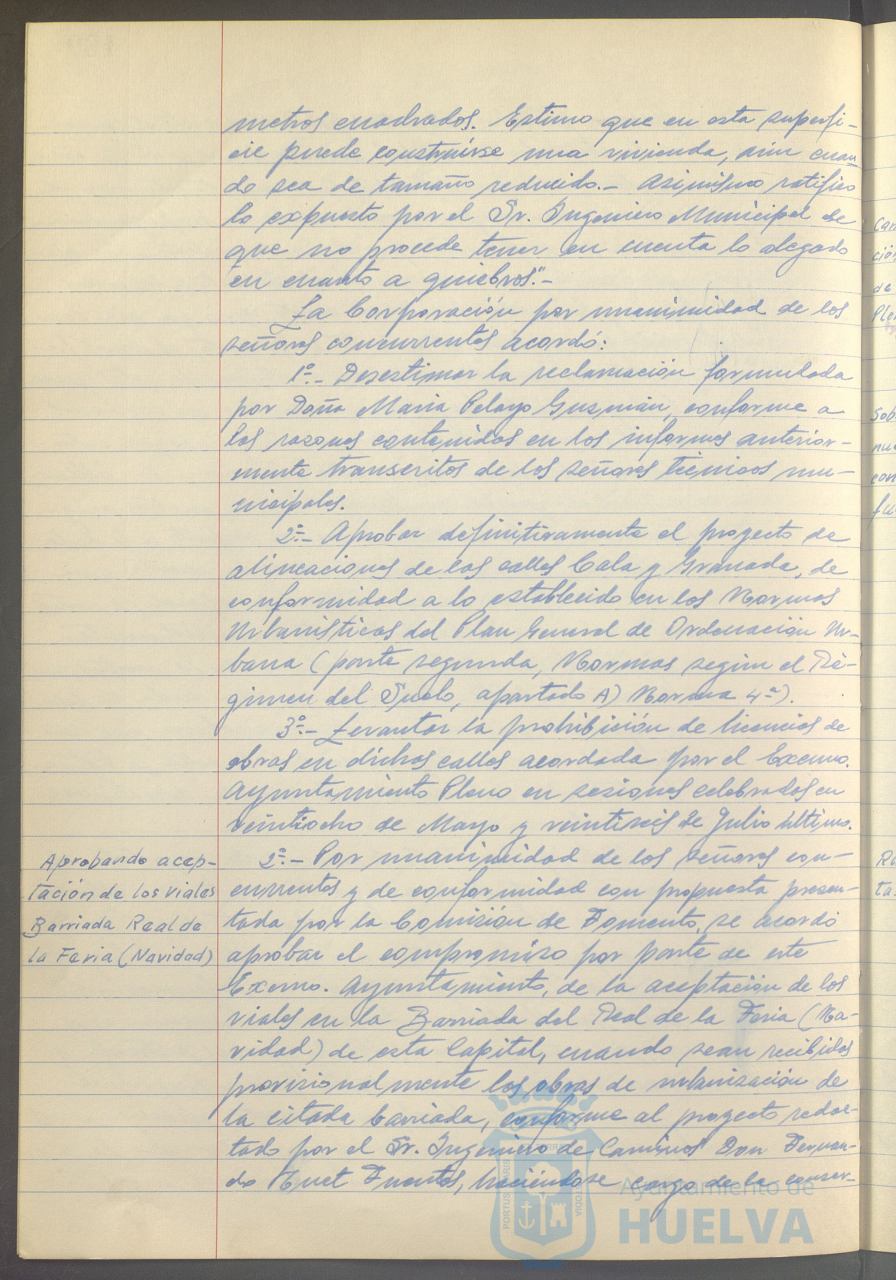 metros cuadrados. Estimo que en esta superfi-
cie puede construirse una vivienda, aún cuan-
do sea de tamaño reducido.- Asimismo ratifico
lo expuesto por el Sr. Ingeniero Municipal de
que no procede tener en cuenta lo alegado
en cuanto a quiebros."-
La Corporación por unanimidad de los
señores concurrentes acordó:
1º.- Desestimar la reclamación formulada
por Doña María Pelayo Guzmán, conforme a
las razones contenidas en los informes anterior-
mente transcritos de los señores técnicos mu-
nicipales.
2º.- Aprobar definitivamente el proyecto de
alineaciones de las calles Cala y Granada, de
conformidad a lo establecido en las Normas
Urbanísticas del Plan General de Ordenación Ur-
bana (parte segunda, Normas según el Ré-
gimen del Suelo, apartado A) Norma 4ª).
3º.- Levantar la prohibición de licencias de
obras en dichas calles acordada por el Excmo.
Ayuntamiento Pleno en sesiones celebradas en
veintiocho de Mayo y veintiseis de Julio último.
Aprobando acep-
tación de los viales
Barriada Real de
la Feria (Navidad)
2º.- Por unanimidad de los señores con-
currentes y de conformidad con propuesta presen-
tada por la Comisión de Fomento, se acordó
aprobar el compromiso por parte de este
Excmo. Ayuntamiento, de la aceptación de los
viales en la Barriada del Real de la Feria (Na-
vidad) de esta Capital, cuando sean recibidas
provisionalmente las obras de urbanización de
la citada barriada, conforme al proyecto redac-
tado por el Sr. Ingeniero de Caminos Don Fernan-
do Fuentes, haciéndose cargo de la conser-
Ayuntamiento de
HUELVA